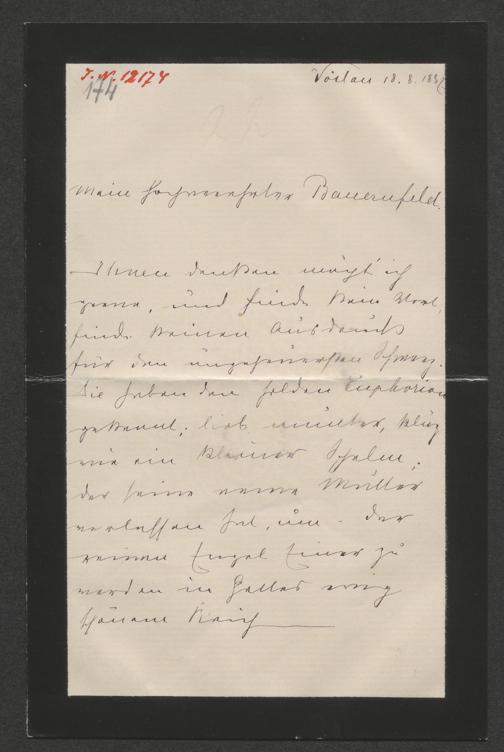 J. N. 12174
174
Vöslau 18. 8. 188
Mein hochverehrter Bauernfeld.
Ihnen danken möcht' ich
gerne, und finde kein Wort,
finde keinen Ausdruck
für den ungeheuersten Schmerz.
Sie haben den holden Euphorion
gekannt, lieb, munter, klug
wie ein kleiner Schelm,
der seine arme Mutter
verlassen hat, um der
reinen Engel Einer zu
werden in Gottes ewig
schönem Reich